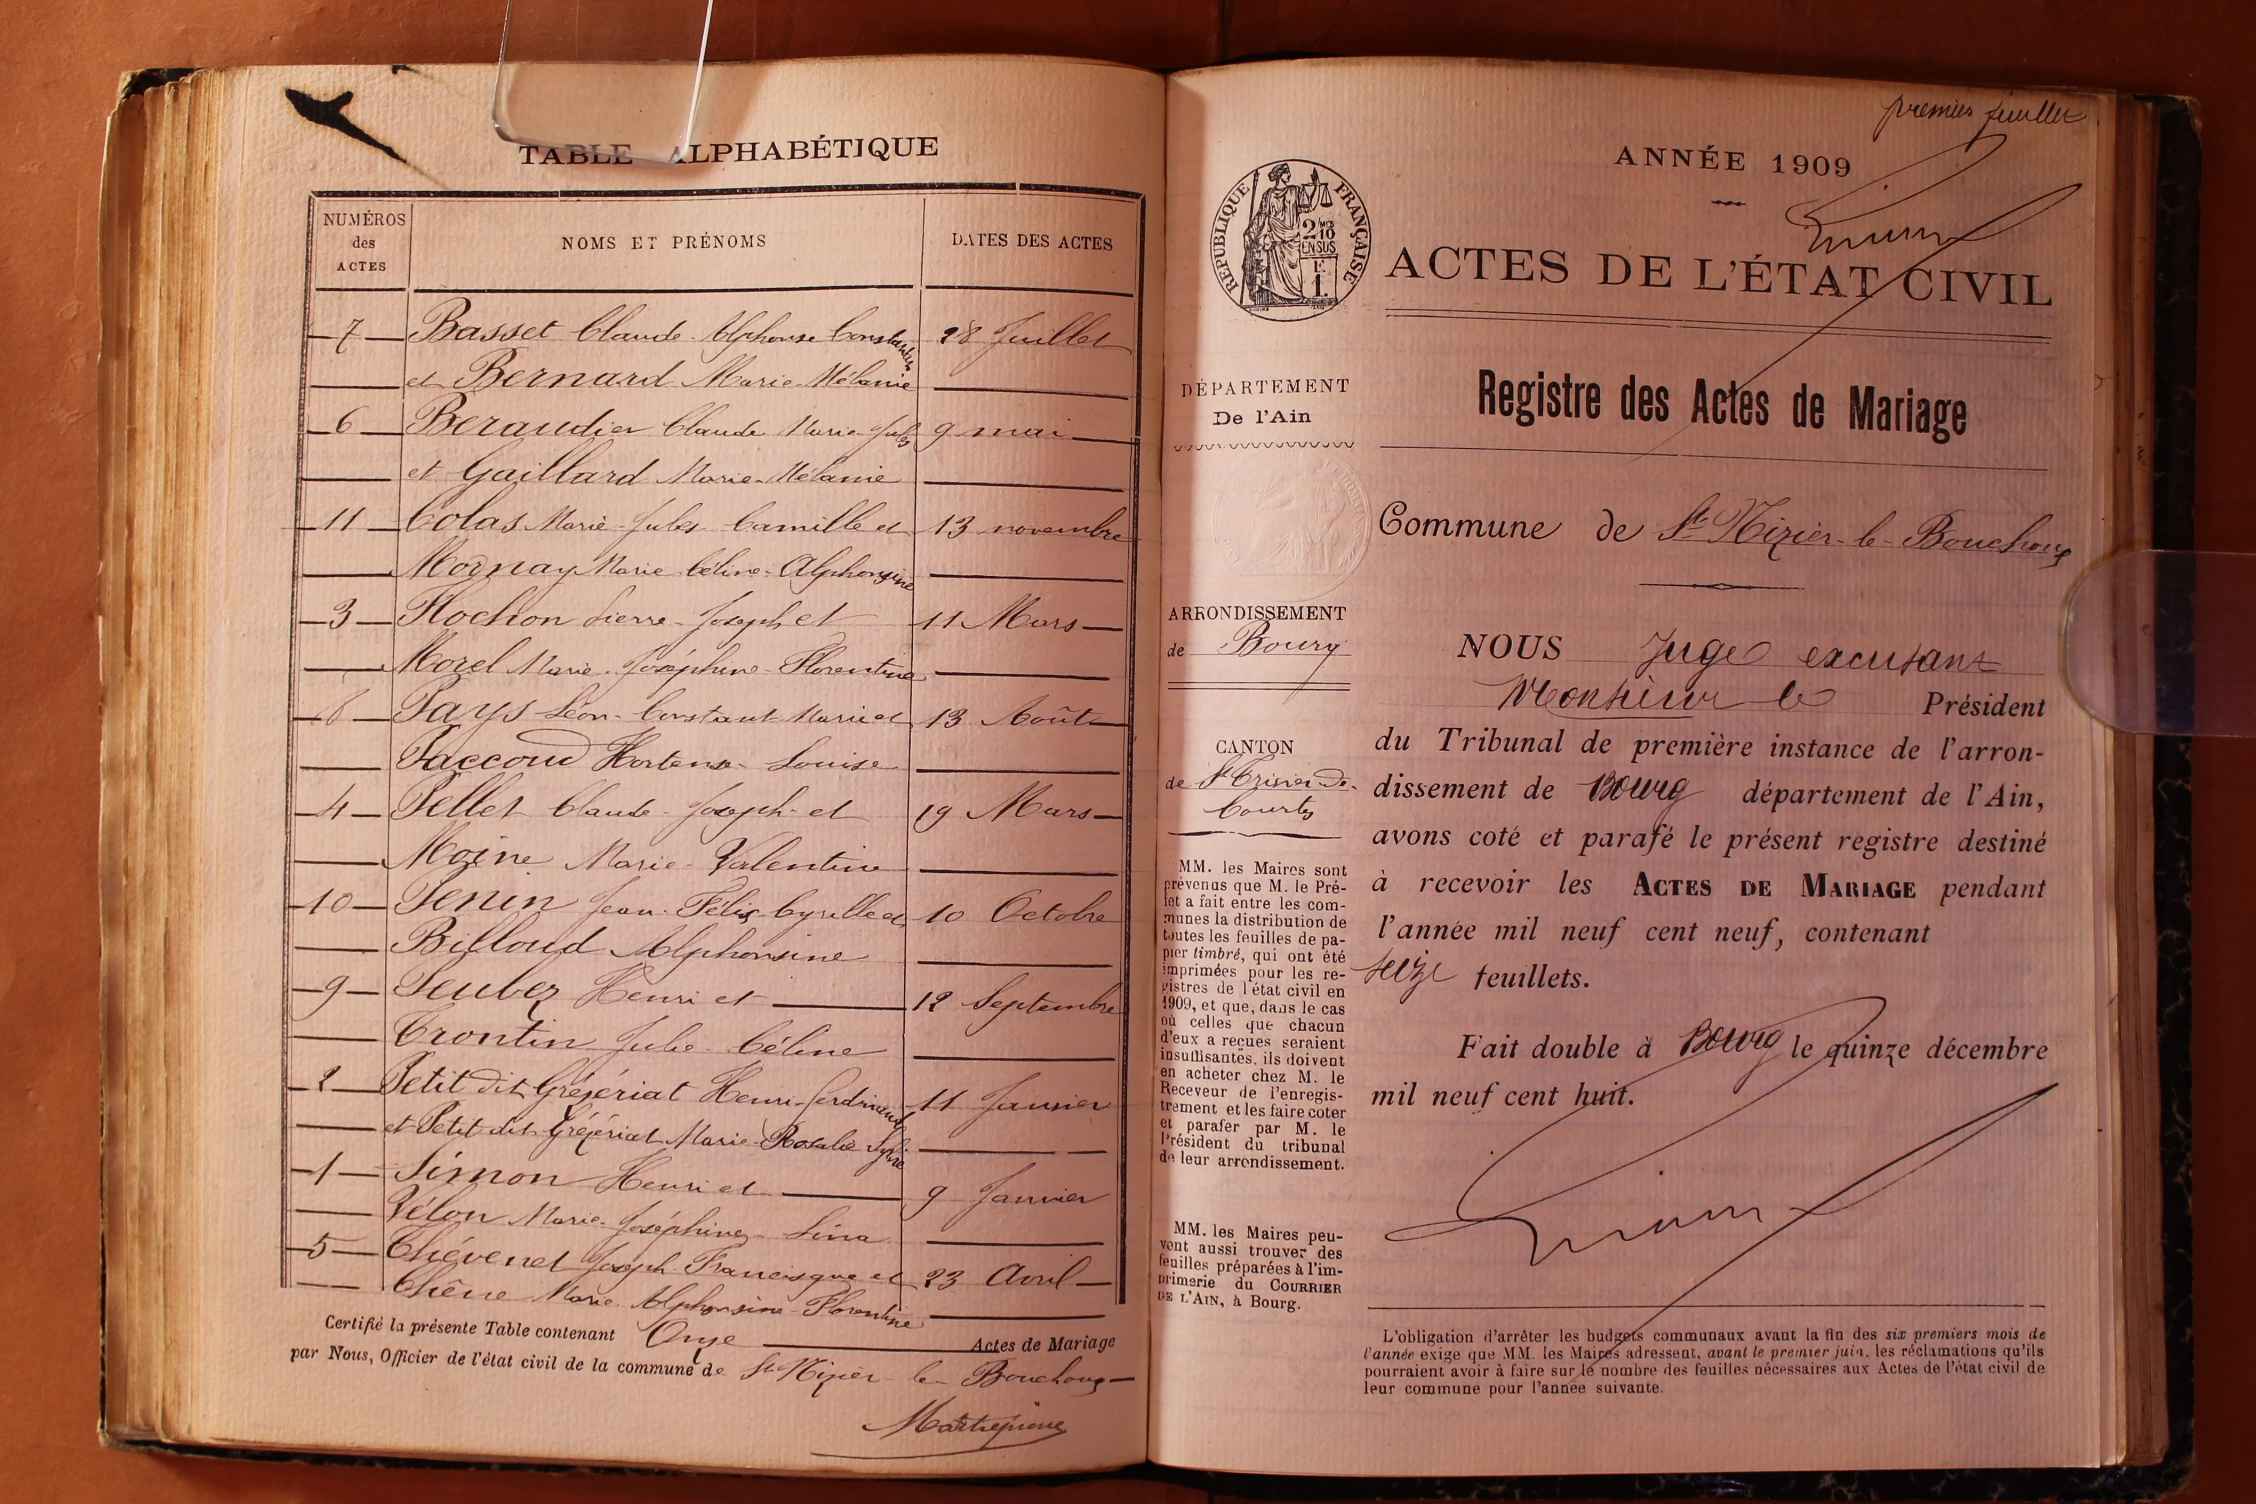 TABLE ALPHABÉTIQUE
NUMÉROS des ACTES
NOMS ET PRÉNOMS
DATES DES ACTES
7 Basset Claude Alphonse Constantin 28 Juillet
et Bernard Marie Mélanie
6 Beraudier Claude Marie Jules 9 mai
et Gaillard Marie-Mélanie
11 Colas Marie-Jules Camille et 13 novembre
Mornay Marie Céline-Alphonsine
3 Flochon Pierre-Joseph et 11 Mars
Morel Marie-Joséphine-Florentine
Pays Léon-Constant Marie et 13 Août
Jaccoud Hortense-Louise
4 Pellet Claude-Joseph-et 19 Mars
Moine Marie-Valentine
10 Penin Jean-Félix-Cyrille et 10 Octobre
Billoud Alphonsine
9 Henri et 12 Septembre
Trontin Julie-Céline
2 Petit dit Gréjériat Henri-Ferdinand 11 Janvier
et Petit dit Gréjériat Marie-Rosalie Sylvie
1 Simon Henri et 9 Janvier
Vélon Marie-Joséphine-Lina
5 Chévenet Joseph-Francisque et 23 Avril
Chêne Marie-Alphonsine-Florentine
Certifié la présente Table contenant Onze Actes de Mariage
par Nous, Officier de l'état civil de la commune de St Nizier-le-Bouchoux
premier feuillet
ANNÉE 1909
RÉPUBLIQUE FRANÇAISE
2/10 EN SUS
F.
1.
ACTES DE L'ÉTAT CIVIL
Registre des Actes de Mariage
Commune de St Nizier-le-Bouchoux
DÉPARTEMENT
De l'Ain
ARRONDISSEMENT
de Bourg
CANTON
de St Trivier-de-
Courtes
MM. les Maires sont
prévenus que M. le Pré-
fet a fait entre les com-
munes la distribution de
toutes les feuilles de pa-
pier timbré, qui ont été
imprimées pour les re-
gistres de l'état civil en
1909, et que, dans le cas
où celles que chacun
d'eux a reçues seraient
insuffisantes, ils doivent
en acheter chez M. le
Receveur de l'enregis-
trement et les faire coter
et parafer par M. le
Président du tribunal
de leur arrondissement.
MM. les Maires peu-
vent aussi trouver des
feuilles préparées à l'im-
primerie du COURRIER
DE L'AIN, à Bourg.
NOUS Juge excusant
Monsieur le Président
du Tribunal de première instance de l'arron-
dissement de Bourg département de l'Ain,
avons coté et parafé le présent registre destiné
à recevoir les ACTES DE MARIAGE pendant
l'année mil neuf cent neuf, contenant
seize feuillets.
Fait double à Bourg le quinze décembre
mil neuf cent huit.
L'obligation d'arrêter les budgets communaux avant la fin des six premiers mois de
l'année exige que MM. les Maires adressent, avant le premier juin, les réclamations qu'ils
pourraient avoir à faire sur le nombre des feuilles nécessaires aux Actes de l'état civil de
leur commune pour l'année suivante.